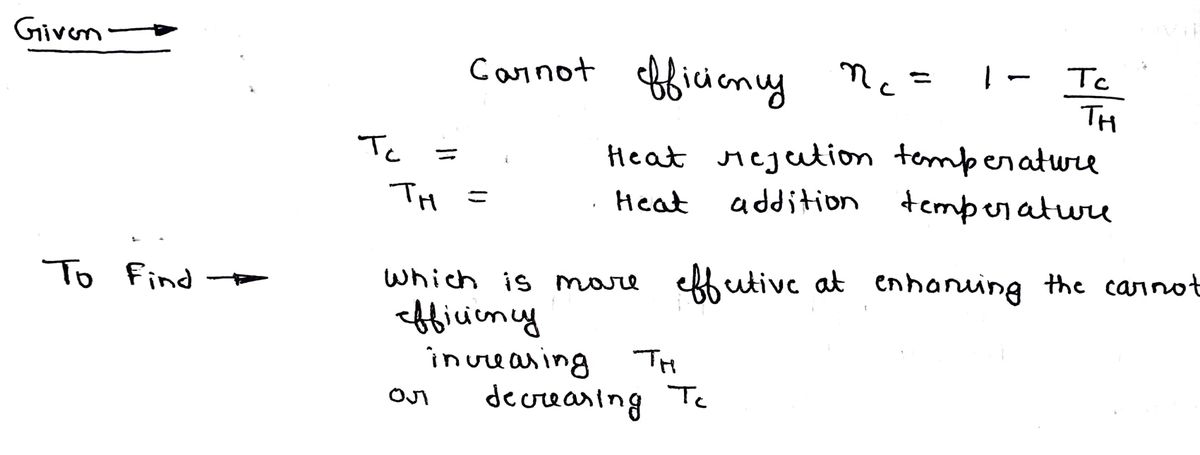 Given →
Carnot efficiency η_c = 1 - T_C / T_H
T_C = Heat rejection temperature
T_H = Heat addition temperature
To Find → which is more effective at enhancing the carnot
efficiency
increasing T_H
or decreasing T_C